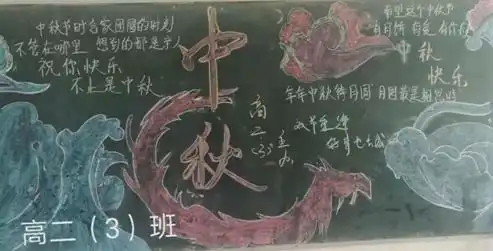 中秋节时合家团圆的时光
不管在哪里 想到的都是亲人
祝你快乐
不止是中秋
中
秋
高二(3)主办
希望这个中秋节
有月饼 有爱 有你
中秋
快乐
年年中秋待月圆 月圆最是相思时
双节重逢
高二（3）班